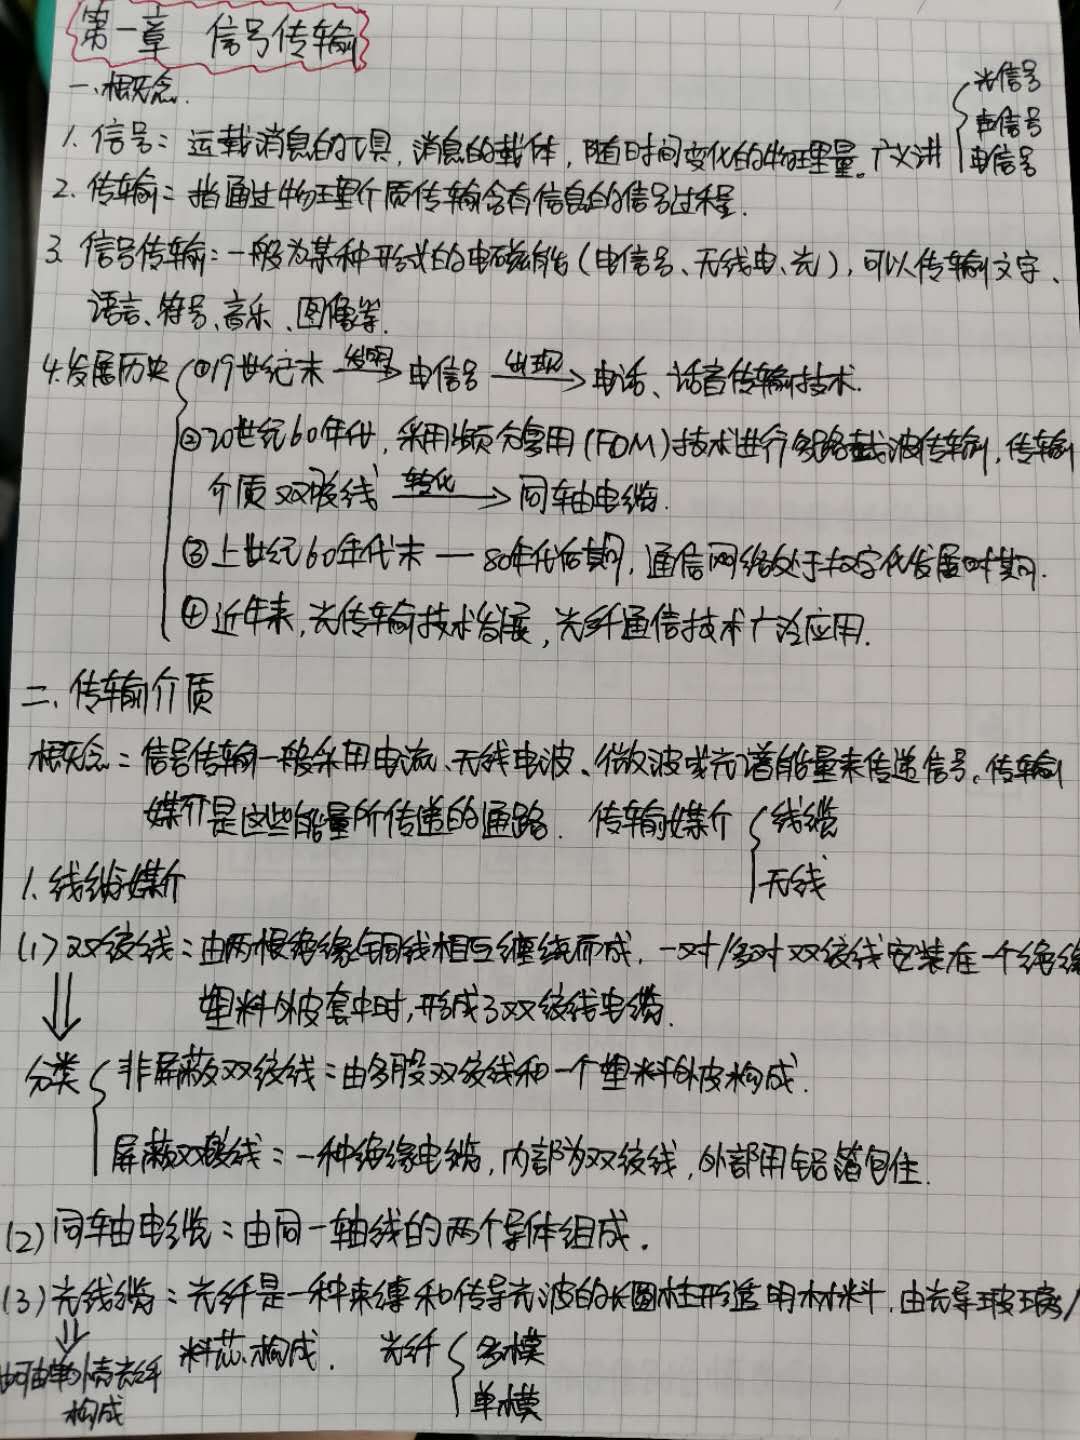 第一章 信号传输
一、概念.
1. 信号：运载消息的工具，消息的载体，随时间变化的物理量。广义讲
光信号
声信号
电信号
2. 传输：指通过物理介质传输含有信息的信号过程.
3. 信号传输：一般为某种形式的电磁能（电信号、无线电、光），可以传输文字、
语言、符号、音乐、图像等.
4.发展历史 ①19世纪末 发明 电信号 出现 电话、话音传输技术.
②20世纪60年代，采用频分复用(FDM)技术进行多路载波传输，传输
介质双股线 转化 同轴电缆.
③上世纪60年代末 — 80年代后期，通信网络处于数字化发展时期.
④近年来，光传输技术发展，光纤通信技术广泛应用.
二、传输介质
概念：信号传输一般采用电流、无线电波、微波或光谱能量来传递信号，传输
媒介是这些能量所传递的通路. 传输媒介
线缆
无线
1. 线缆媒介
(1) 双绞线：由两根绝缘铜线相互缠绕而成，一对/多对双绞线安装在一个绝缘
塑料外皮套中时，形成了双绞线电缆.
分类 非屏蔽双绞线：由多股双绞线和一个塑料外皮构成.
屏蔽双绞线：一种绝缘电缆，内部为双绞线，外部用铝箔包住.
(2) 同轴电缆：由同一轴线的两个导体组成.
(3) 光线缆：光纤是一种束缚和传导光波的长圆柱形透明材料，由光导玻璃/
料芯构成. 光纤
多模
单模
外壳光纤
构成